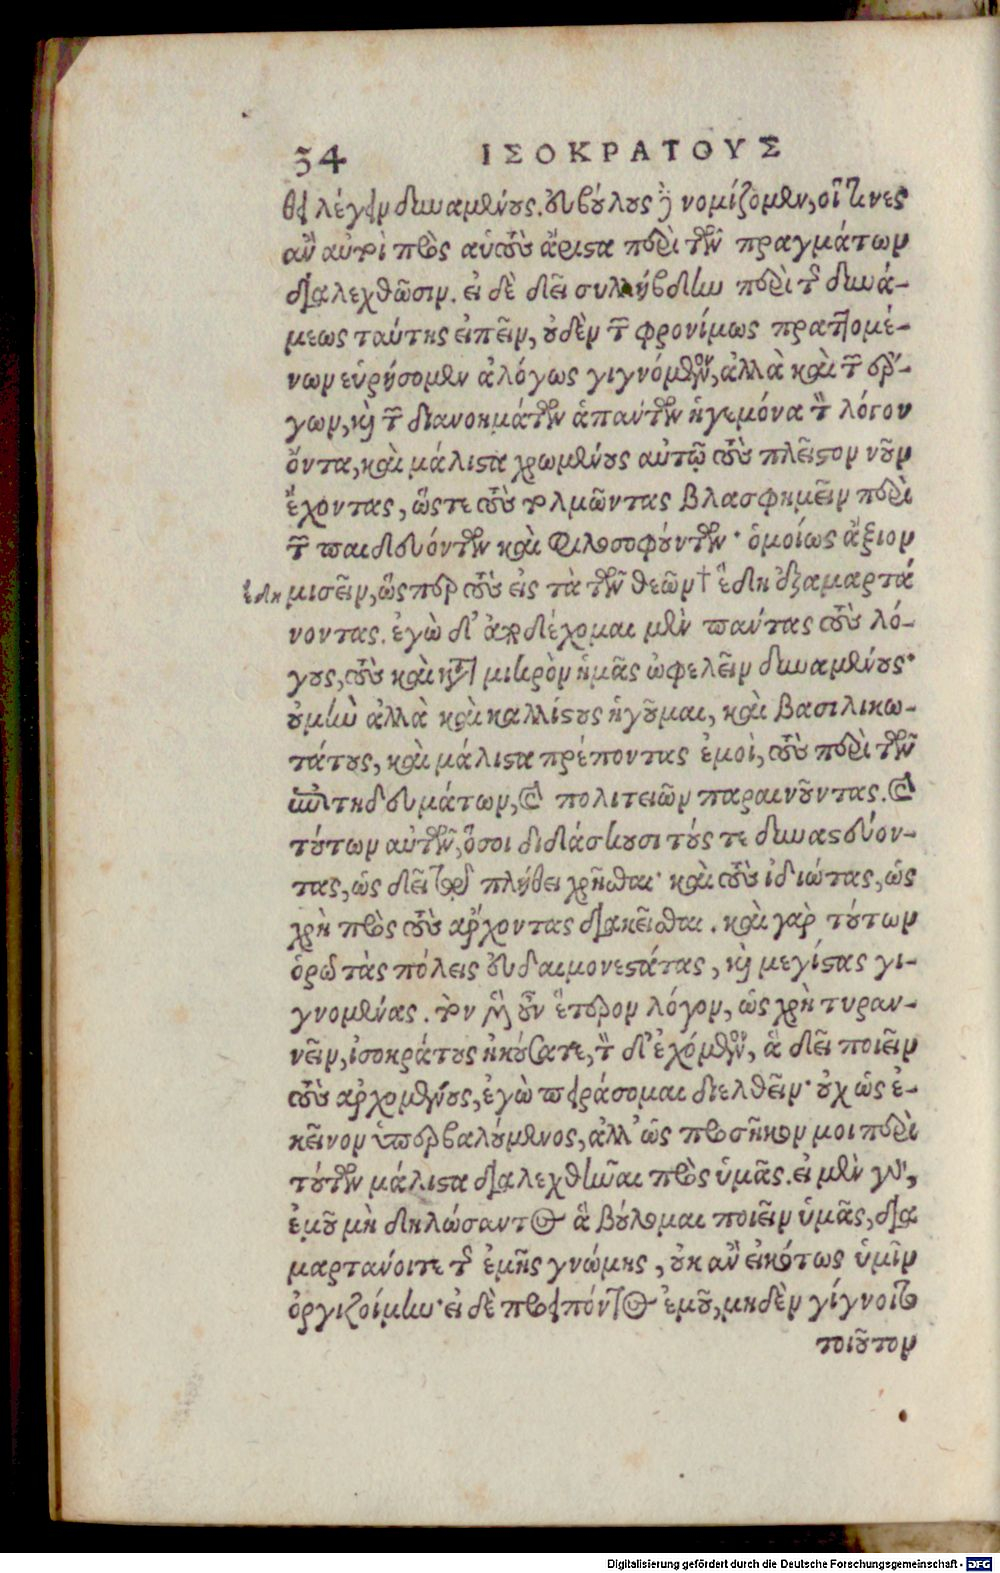 54 ΙΣΟΚΡΑΤΟΥΣ
θει λέγειν δυναμένους. εὐβούλους δὲ νομίζομεν, οἵ τινες
ἂν αὐτοὶ πρὸς αὑτοὺς ἄριστα περὶ τῶν πραγμάτων
διαλεχθῶσιν. εἰ δὲ δεῖ συλλήβδην περὶ τῆς δυνά-
μεως ταύτης εἰπεῖν, οὐδὲν τῶν φρονίμως πραττομέ-
νων εὑρήσομεν ἀλόγως γιγνόμενον, ἀλλὰ καὶ τῶν ἔρ-
γων, καὶ τῶν διανοημάτων ἁπάντων ἡγεμόνα τὸν λόγον
ὄντα, καὶ μάλιστα χρωμένους αὐτῷ τοὺς πλεῖστον νοῦν
ἔχοντας, ὥστε τοὺς τολμῶντας βλασφημεῖν περὶ
τῶν παιδευόντων καὶ φιλοσοφούντων· ὁμοίως ἄξιον
ἕδη μισεῖν, ὥσπερ τοὺς εἰς τὰ τῶν θεῶν † ἕδη ἐξαμαρτά
νοντας. ἐγὼ δ' ἀποδέχομαι μὲν πάντας τοὺς λό-
γους, τοὺς καὶ κατὰ μικρὸν ἡμᾶς ὠφελεῖν δυναμένους·
οὐ μὴν ἀλλὰ καὶ καλλίστους ἡγοῦμαι, καὶ βασιλικω-
τάτους, καὶ μάλιστα πρέποντας ἐμοὶ, τοὺς περὶ τῶν
ἐπιτηδευμάτων, καὶ πολιτειῶν παραινοῦντας. καὶ
τούτων αὐτῶν, ὅσοι διδάσκουσι τούς τε δυναστεύον-
τας, ὡς δεῖ τῷ πλήθει χρῆσθαι· καὶ τοὺς ἰδιώτας, ὡς
χρὴ πρὸς τοὺς ἄρχοντας διακεῖσθαι. καὶ γὰρ τούτων
ὁρῶ τὰς πόλεις εὐδαιμονεστάτας, καὶ μεγίστας γι-
γνομένας. τὸν μὲν οὖν ἕτερον λόγον, ὡς χρὴ τυραν-
νεῖν, ἰσοκράτους ἠκούσατε, τὸν δ' ἐχόμενον, ἃ δεῖ ποιεῖν
τοὺς ἀρχομένους, ἐγὼ πειράσομαι διελθεῖν· οὐχ ὡς ἐ-
κεῖνον ὑπερβαλούμενος, ἀλλ' ὡς προσῆκον μοι περὶ
τούτων μάλιστα διαλεχθῆναι πρὸς ὑμᾶς. εἰ μὲν γὰρ,
ἐμοῦ μὴ δηλώσαντος ἃ βούλομαι ποιεῖν ὑμᾶς, δια
μαρτάνοιτε τῆς ἐμῆς γνώμης, οὐκ ἂν εἰκότως ὑμῖν
ὀργιζοίμην· εἰ δὲ προειπόντος ἐμοῦ, μηδὲν γίγνοιτο
τοιοῦτον
Digitalisierung gefördert durch die Deutsche Forschungsgemeinschaft - DFG